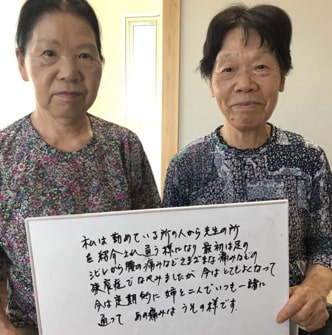 私は勤めている所の人から先生の所
を紹介され通う様になり最初は足の
シビレから腰の痛みなどさまざまな痛みなどの
後産症でなやみましたが今はとてもよくなって
今は定期的に姉と二人でいつも一緒に
通って あの痛みは うその様です.